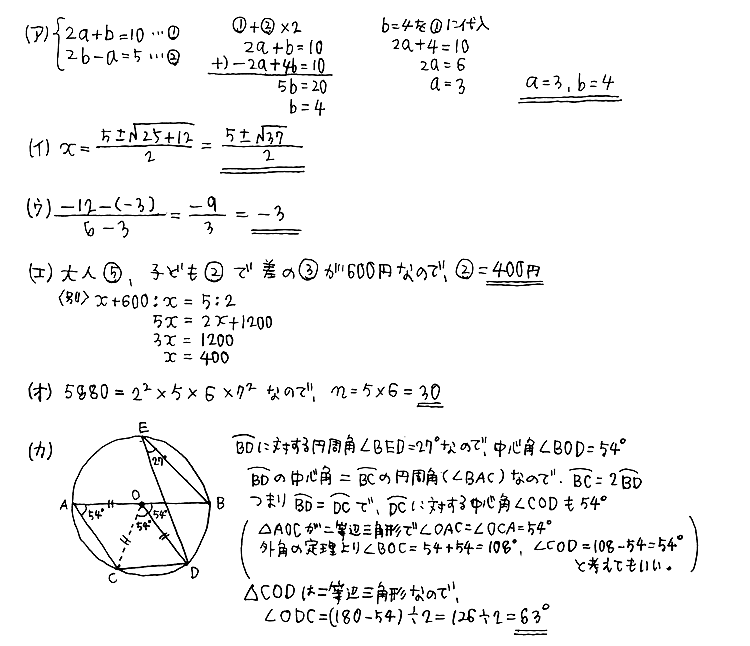 (ア) {2a+b=10 … ①
2b-a=5 … ②
①+②×2
2a+b=10
+) -2a+4b=10
5b=20
b=4
b=4を①に代入
2a+4=10
2a=6
a=3
a=3, b=4
(イ) x = (5±√25+12)/2 = (5±√37)/2
(ウ) (-12-(-3))/(6-3) = -9/3 = -3
(エ) 大人⑤、子ども②で差の③が600円なので、②=400円
〈別〉 x+600:x=5:2
5x=2x+1200
3x=1200
x=400
(オ) 5880=2²×5×6×7² なので、n=5×6=30
(カ)
E
27°
A
O
B
54°
54°
54°
C
D
BDに対する円周角∠BED=27°なので、中心角∠BOD=54°
BDの中心角=BCの円周角(∠BAC)なので、BC=2BD
つまりBD=DCで、DCに対する中心角∠CODも54°
(△AOCが二等辺三角形で∠OAC=∠OCA=54°
外角の定理より∠BOC=54+54=108°、∠COD=108-54=54°
と考えてもいい。)
△CODは二等辺三角形なので、
∠ODC=(180-54)÷2=126÷2=63°